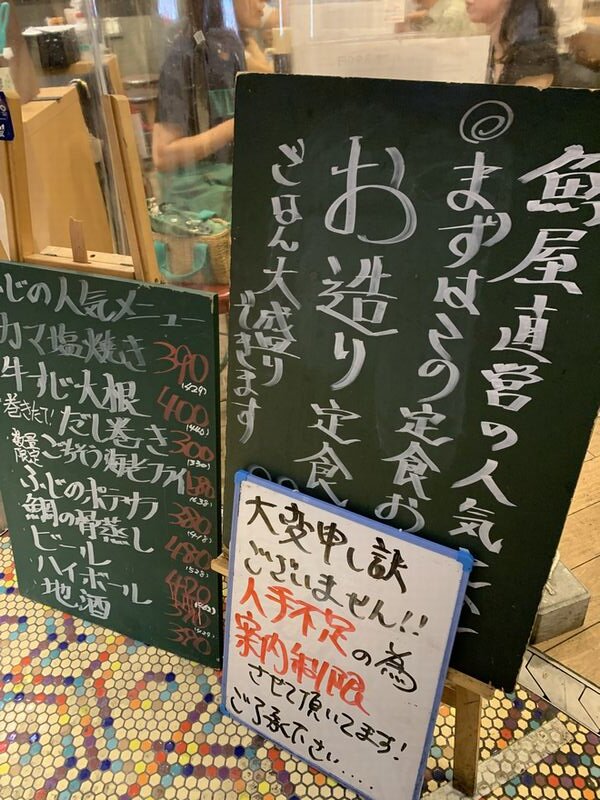 魚屋直営の人気
まずはこの定食お
お造り定食
ごはん大盛り
できます
ふじの人気メニュー
カマ塩焼き 390 (429)
牛すじ大根 400 (440)
巻きたて! だし巻き 300 (330)
数量限定 ごちそう海老フライ
ふじのポテサラ 380 (418)
鯛の骨蒸し 480 (528)
ビール 420
ハイボール
地酒 390
大変申し訳
ございません!!
人手不足の為
案内制限
させて頂いてます!
ご了承下さい....